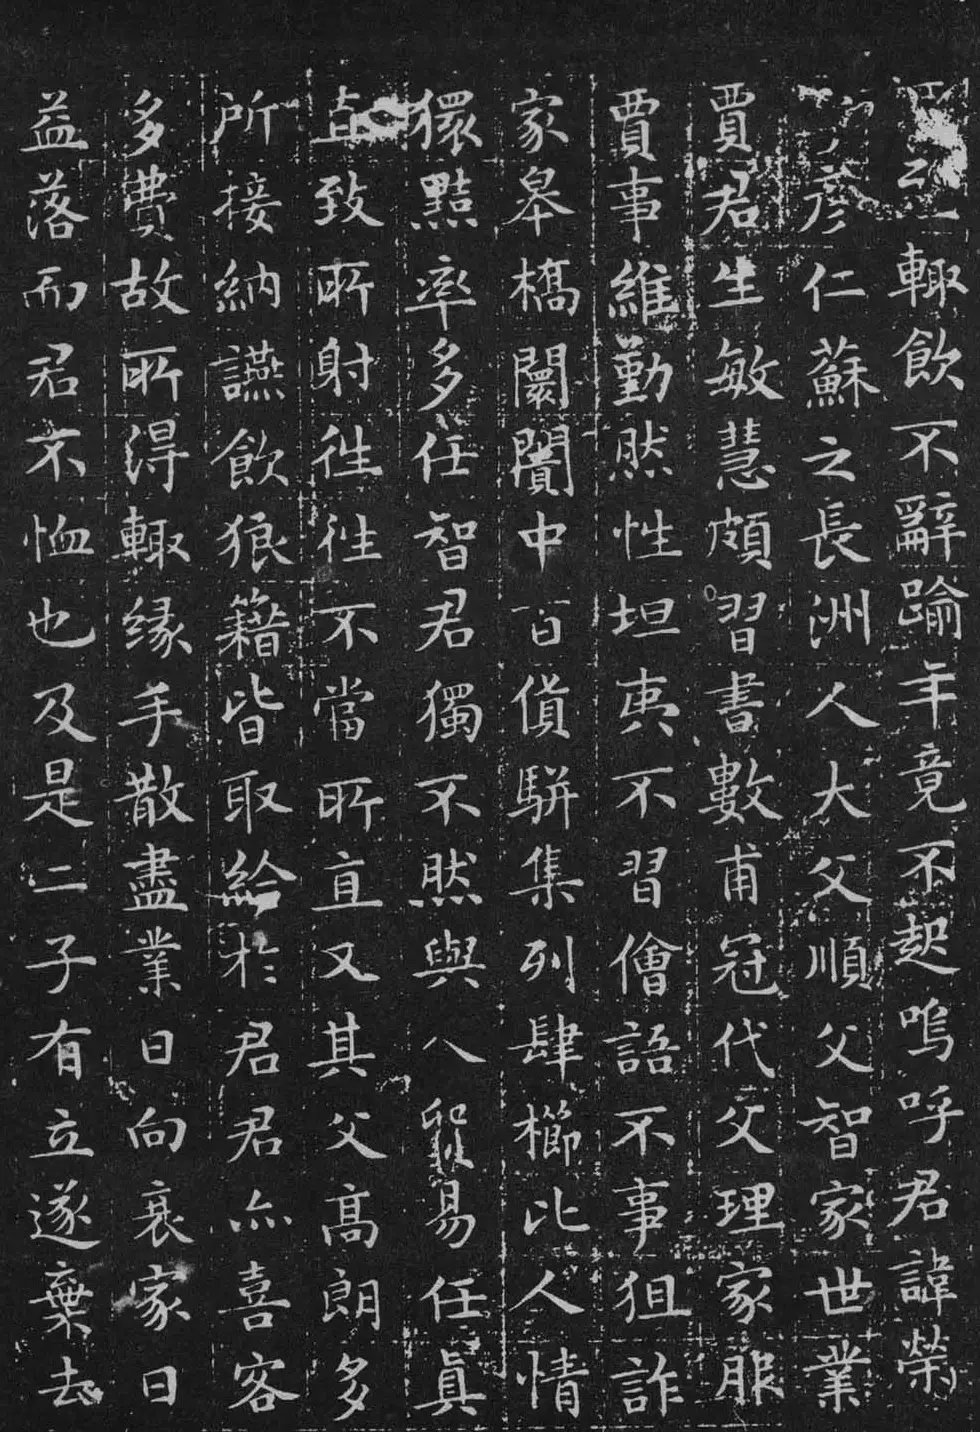 輙飲不辭踰年竟不起嗚呼君諱榮
彥仁蘇之長洲人大父順父智家世業
賈君生敏慧頗習書數甫冠代父理家服
賈事維勤然性坦夷不習儈語不事狙詐
家皋橋闤闠中百貨駢集列肆櫛比人情
獧黠率多任智君獨不然與人貿易任眞
直致所射徃徃不當所直又其父高朗多
所接納讌飲狼籍皆取給於君君亦喜客
多費故所得輙緣手散盡業日向衰家日
益落而君不恤也及是二子有立遂棄去